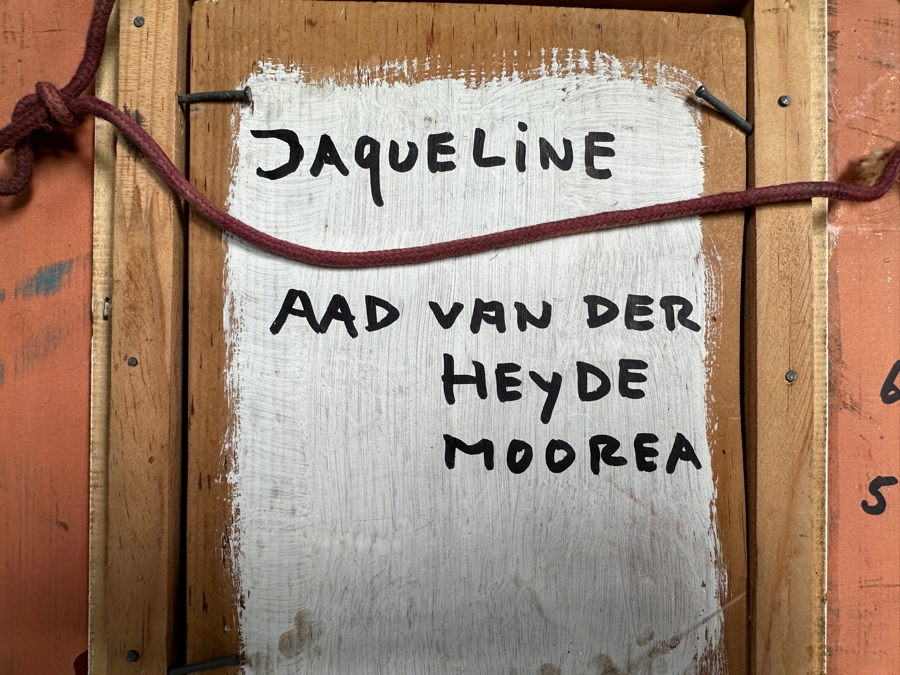 JAqUELiNE
AAD VAN DER
HEyDE
MOOREA
6
5